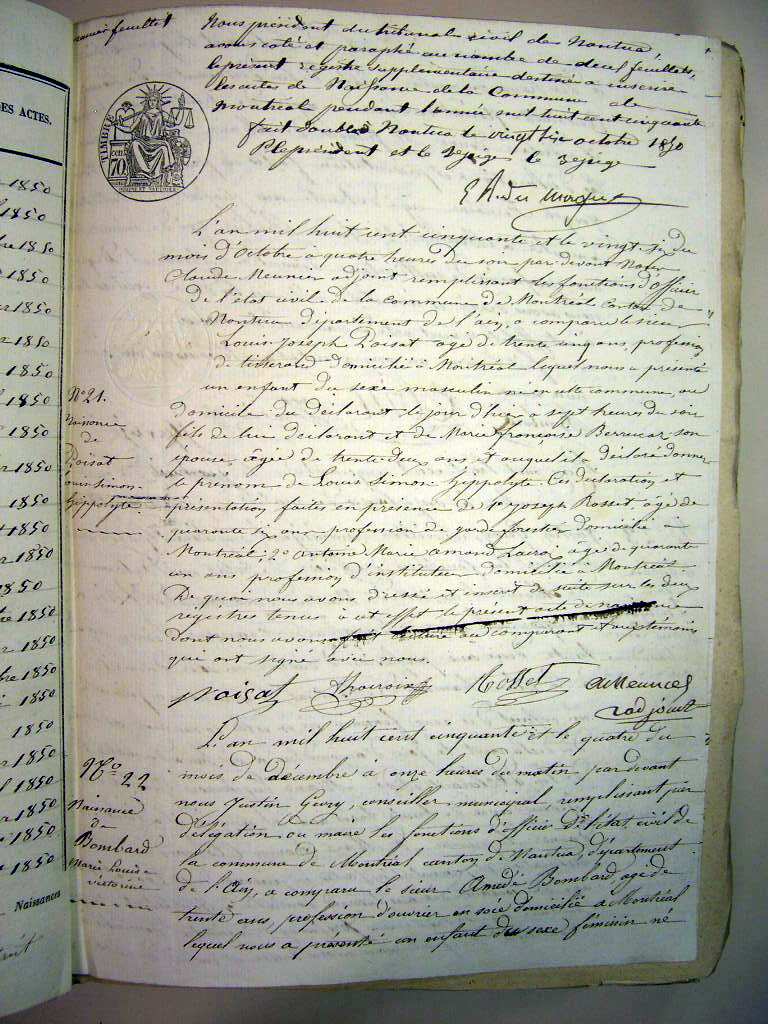 premier feuillet
Nous président du tribunal civil de Nantua,
avons coté et paraphé au nombre de deux feuillets,
le présent registre supplémentaire destiné a inscrire
les actes de Naissance de la Commune de
Montréal pendant l'année mil huit cent cinquante
fait double à Nantua le vingt six octobre 1850
P. le président et le
ES ACTES.
TIMBRE
70
L'an mil huit cent cinquante et le vingt six du
mois d'Octobre a quatre heures du soir par devant Nous
Claude Meunier adjoint remplissant les fonctions d'officier
de l'état civil de la commune de Montréal Canton de
Nantua département de l'ain, a comparu le sieur
Louis Joseph Poisat agé de trente cinq ans, profession
de tisserand domicilié à Montréal lequel nous a présenté
un enfant du sexe masculin né en cette commune, au
domicile du déclarant le jour d'hier a sept heures du soir
fils de lui déclarant et de Marie françoise son
épouse agée de trente deux ans et auquel il a déclaré donner
le prénom de Louis Simon hyppolyte. Ces déclaration et
présentation faites en présence de 1º Joseph Rosset, âgé de
quarante six ans, profession de garde forestier domicilié à
Montréal; 2º Antoine Marie Amand âgé de quarante
un ans profession d'instituteur domicilié à Montréal
De quoi nous avons dressé et inscrit de suite sur les deux
registres tenus à cet effet le présent acte de naissance
dont nous avons fait lecture au comparant et aux témoins
qui ont signé avec nous.
Nº 21.
Naissance
de
Poisat
Louis Simon
hippolyte
Poisat Rosset Meunier
adjoint
Nº 22
Naissance
de
Bombard
Marie Louise
victorine
L'an mil huit cent cinquante et le quatre du
mois de décembre à onze heures du matin par devant
nous Justin Gevry, conseiller municipal, remplissant par
délégation du maire les fonctions d'officier de l'état civil de
la commune de Montréal canton de Nantua, département
de l'Ain, a comparu le sieur Amédé Bombard agé de
trente ans, profession d'ouvrier en soie domicilié a Montréal
lequel nous a présenté un enfant du sexe féminin né
1850
1850
1850
1850
1850
1850
1850
1850
1850
1850
1850
1850
1850
1850
1850
1850
1850
1850
1850
1850
1850
1850
1850
1850
Naissances